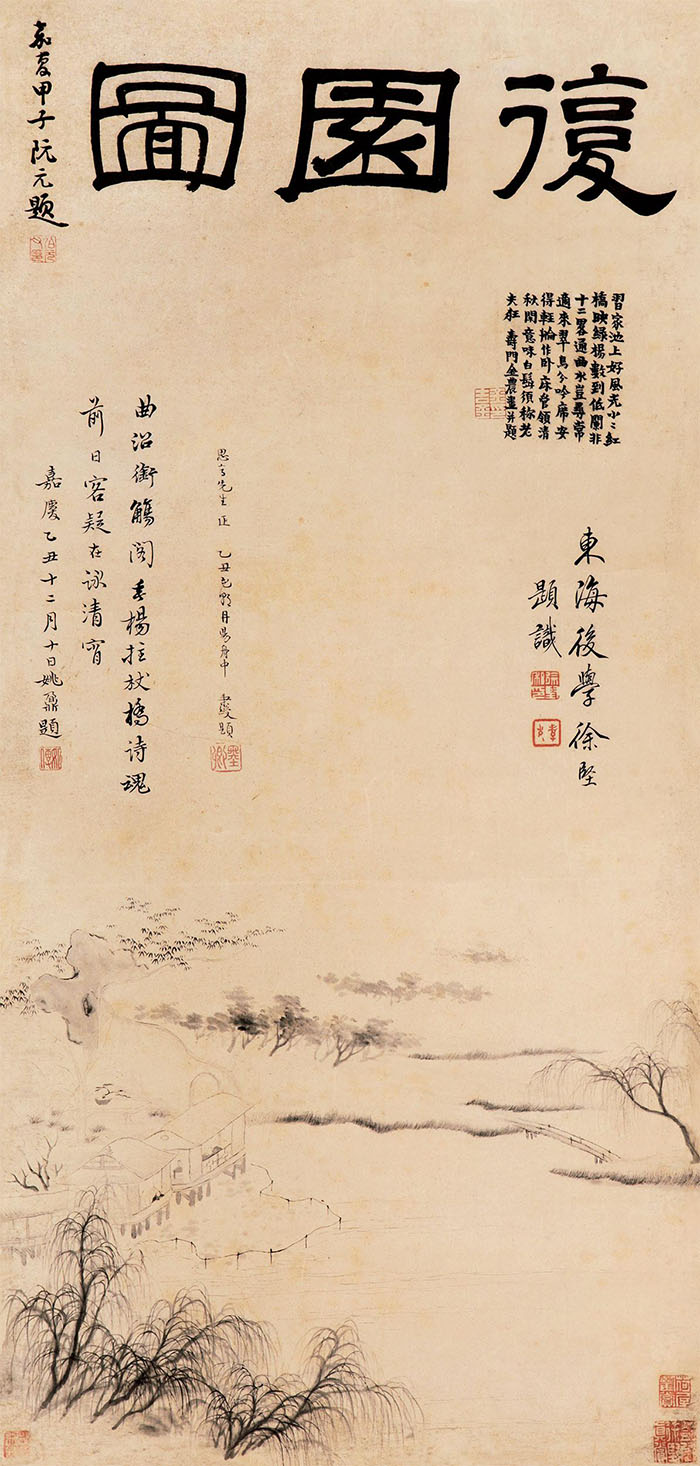 復園圖
嘉慶甲子阮元題
習家池上好風光小小紅
橋映綠楊數到低闌非
十二畧通曲水豈尋常
適來翠鳥分吟席安
得輕舩作卧床管領清
秋閒意味白鬚須稱老
夫狂 壽門金農畫并題
東海後學徐堅
題識
思亭先生正 乙丑 丹陽舟中 題
曲沼銜觴閣垂楊拄杖橋詩魂
前日客疑在詠清宵
嘉慶乙丑十二月十日姚鼐題